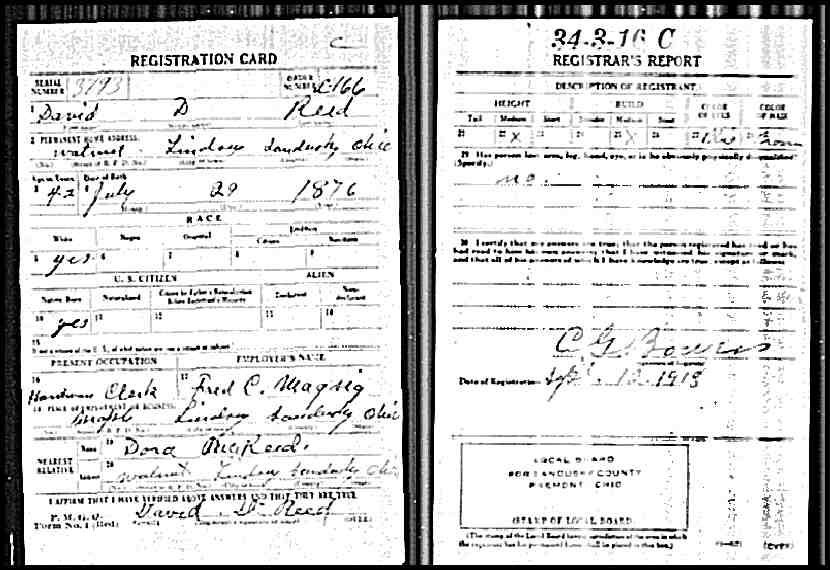 C
REGISTRATION CARD
SERIAL NUMBER 3193 ORDER NUMBER C166
1 David D Reed
2 PERMANENT HOME ADDRESS:
Walnut Lindsey Sandusky Ohio
Age in Years Date of Birth
3 42 4 July 29 1876
RACE
White Negro Oriental Indian
Citizen Noncitizen
5 yes 6 7 8 9
U. S. CITIZEN ALIEN
Native Born Naturalized Citizen by Father's Naturalization Before Registrant's Majority Declarant Non-declarant
10 yes 11 12 13 14
15
If not a citizen of the U. S., of what nation are you a citizen or subject?
PRESENT OCCUPATION EMPLOYER'S NAME
16 Hardware Clerk 17 Fred C.
18 PLACE OF EMPLOYMENT OR BUSINESS:
Lindsey Sandusky Ohio
NEAREST RELATIVE Name 19 Dora Reed.
20 Walnut Lindsey Sandusky Ohio
I AFFIRM THAT I HAVE VERIFIED ABOVE ANSWERS AND THAT THEY ARE TRUE
P. M. G. O.
Form No. 1 (Red) David D Reed (OVER)
34-3-16 C
REGISTRAR'S REPORT
DESCRIPTION OF REGISTRANT
HEIGHT BUILD COLOR OF EYES COLOR OF HAIR
Tall Medium Short Slender Medium Stout
21 22 X 23 24 25 X 26 27 28
29 Has person lost arm, leg, hand, eye, or is he obviously physically disqualified?
(Specify.)
no.
30 I certify that my answers are true; that the person registered has read or has
had read to him his own answers; that I have witnessed his signature or mark,
and that all of his answers of which I have knowledge are true, except as follows:
C G Bowers
Date of Registration Sept. 12 1918
LOCAL BOARD
FOR SANDUSKY COUNTY
FREMONT, OHIO
(STAMP OF LOCAL BOARD)
(The stamp of the Local Board having jurisdiction of the area in which
the registrant has his permanent home shall be placed in this box.)
(OVER)